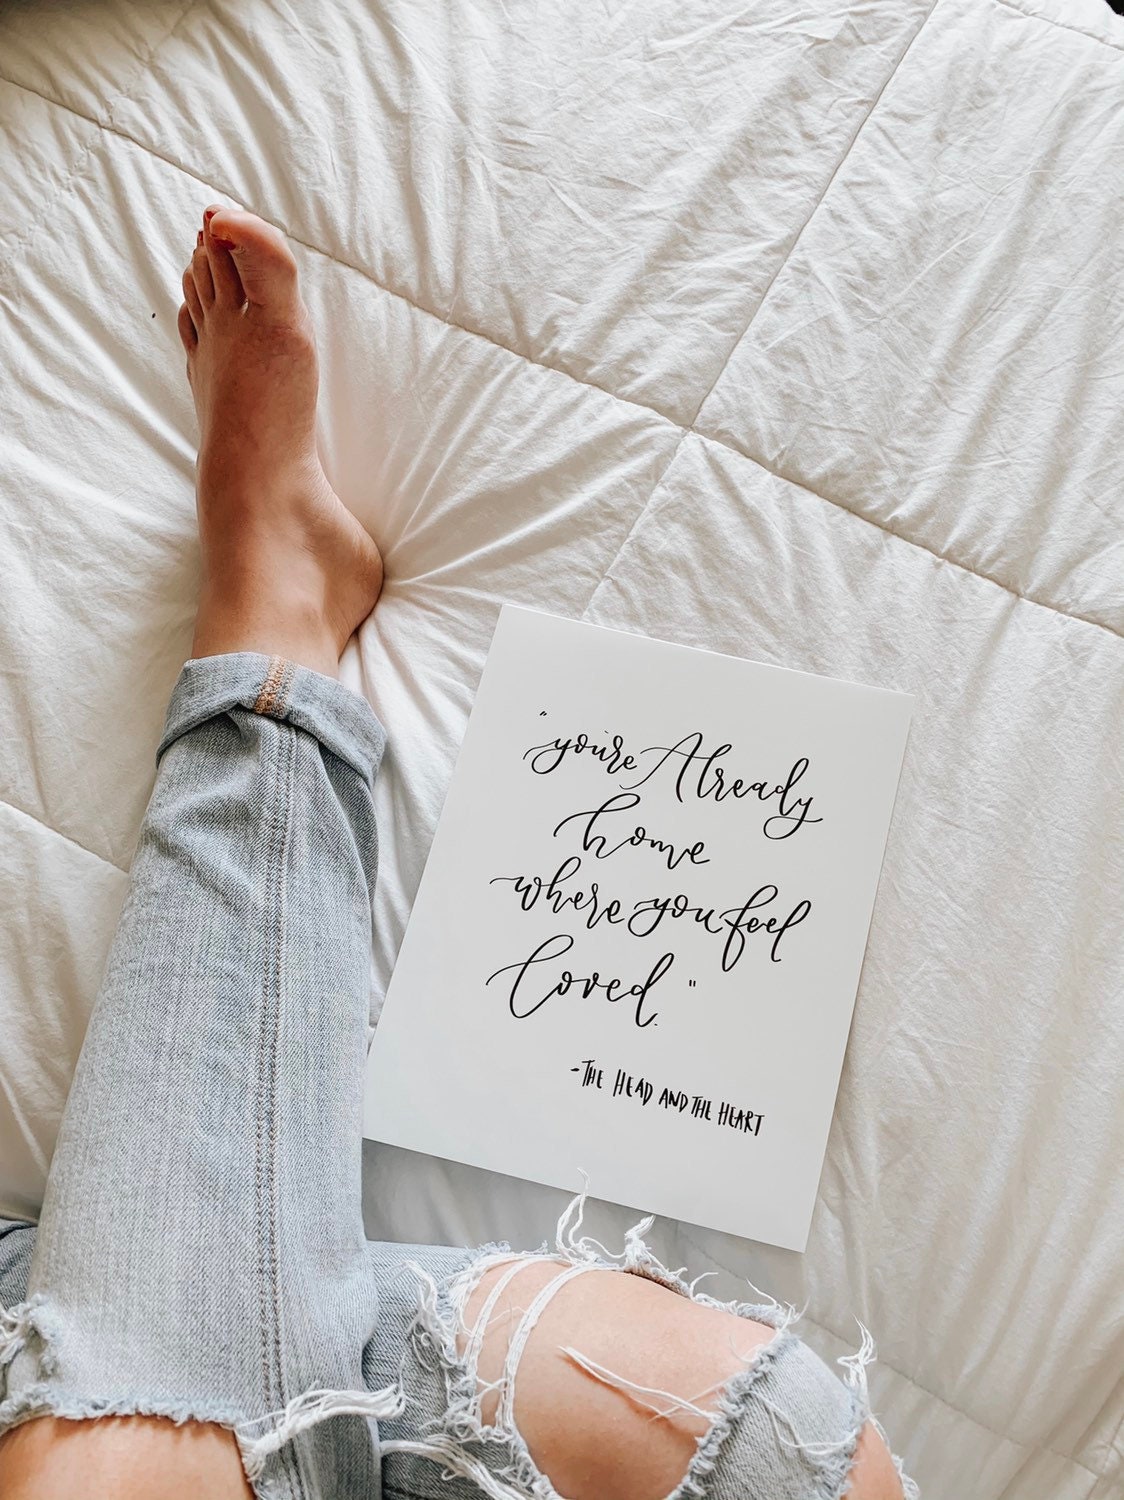 "you're Already
home
where you feel
loved."
-THE HEAD AND THE HEART